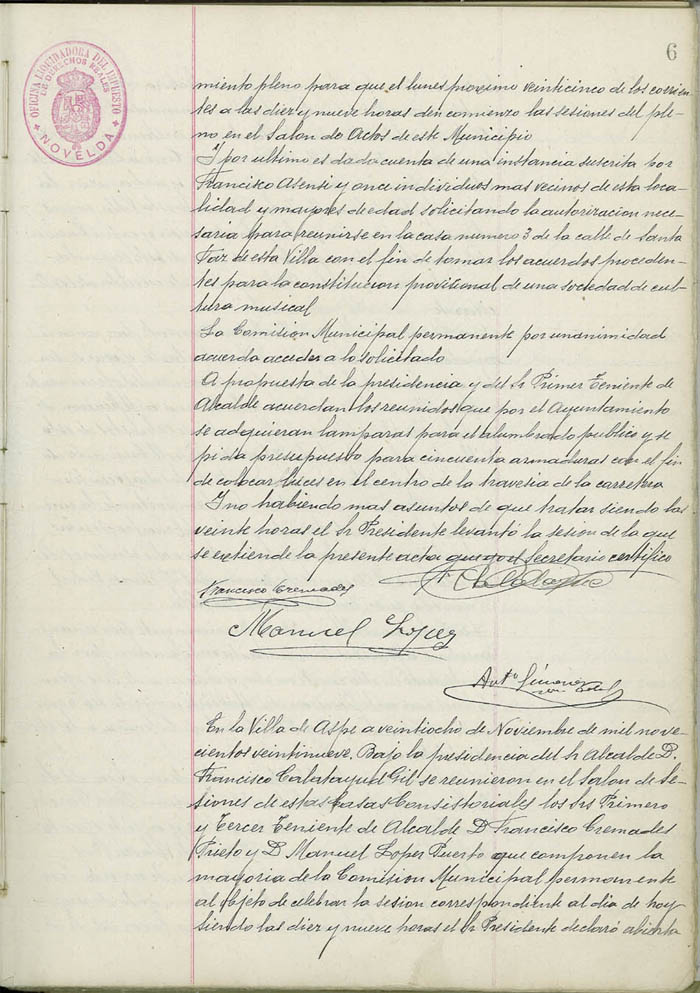 6
OFICINA LIQUIDADORA DEL IMPUESTO
DE DERECHOS REALES
NOVELDA
miento pleno para que el lunes proximo veinticinco de los corrien-
tes a las diez y nueve horas den comienzo las sesiones del ple-
no en el Salon de Actos de este Municipio
Y por ultimo es dada cuenta de una instancia suscrita por
Francisco Asensi y once individuos mas vecinos de esta loca-
lidad y mayores de edad solicitando la autorizacion nece-
saria para reunirse en la casa numero 3 de la calle de Santa
Faz de esta Villa con el fin de tomar los acuerdos proceden-
tes para la constitucion provisional de una sociedad de cul-
tura musical
La Comision Municipal permanente por unanimidad
acuerda acceder a lo solicitado
A propuesta de la presidencia y del Sr Primer Teniente de
Alcalde acuerdan los reunidos que por el Ayuntamiento
se adquieran lamparas para el alumbrado publico y se
pida presupuesto para cincuenta armaduras con el fin
de colocar luces en el centro de la travesia de la carretera
Y no habiendo mas asuntos de que tratar siendo las
veinte horas el Sr Presidente levantó la sesion de la que
se extiende la presente acta que yo el Secretario certifico
Francisco Cremades
Manuel Lopez
Ant.º Gimenez
En la Villa de Aspe a veintiocho de Noviembre de mil nove-
cientos veintinueve. Bajo la presidencia del Sr Alcalde D.
Francisco Calatayud Gil se reunieron en el Salon de Se-
siones de estas Casas Consistoriales los Srs Primero
y Tercer Teniente de Alcalde D Francisco Cremades
Prieto y D Manuel Lopez Puerto que componen la
mayoria de la Comision Municipal permanente
al objeto de celebrar la sesion correspondiente al dia de hoy
siendo las diez y nueve horas el Sr Presidente declaró abierta